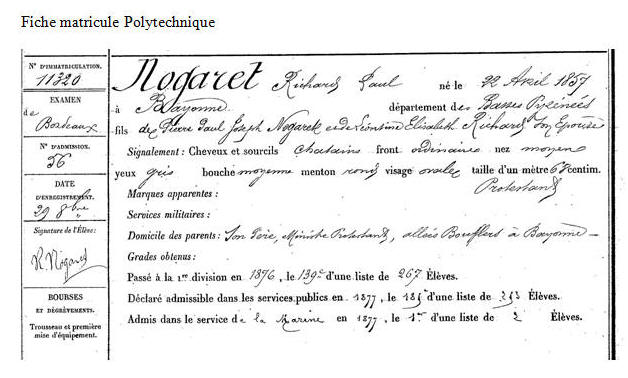 Fiche matricule Polytechnique
N° D'IMMATRICULATION.
11320
EXAMEN
de
Bordeaux
N° D'ADMISSION.
56
DATE
D'ENREGISTREMENT.
29 8bre
Signature de l'Élève:
R. Nogaret
BOURSES
ET DÉGRÈVEMENTS.
Trousseau et première
mise d'équipement.
Nogaret Richard Paul né le 22 Avril 1857
à Bayonne département des Basses Pyrénées
fils de Pierre Paul Joseph Nogaret et de Léontine Elisabeth Richard Son Epouse
Signalement: Cheveux et sourcils chatains front ordinaire nez moyen
yeux gris bouche moyenne menton rond visage ovale taille d'un mètre centim.
Marques apparentes: Protestant
Services militaires:
Domicile des parents: Son Père, Ministre Protestant, allées Boufflers à Bayonne
Grades obtenus:
Passé à la 1re division en 1876, le 139e d'une liste de 267 Élèves.
Déclaré admissible dans les services publics en 1877, le d'une liste de Élèves.
Admis dans le service de la Marine en 1877, le 1er d'une liste de 2 Élèves.